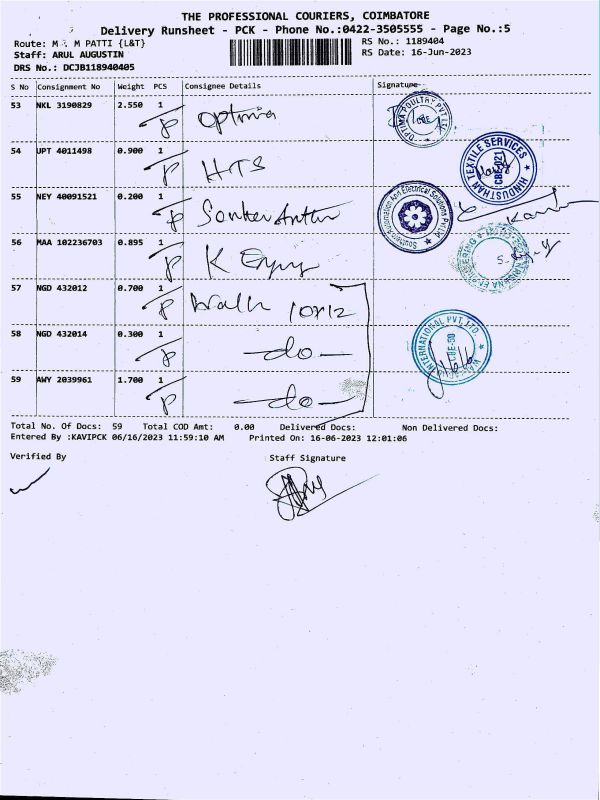 THE PROFESSIONAL COURIERS, COIMBATORE
Delivery Runsheet - PCK - Phone No.:0422-3505555 - Page No.:5
Route: M . M PATTI {L&T} RS No.: 1189404
Staff: ARUL AUGUSTIN RS Date: 16-Jun-2023
DRS No.: DCJB118940405
S No Consignment No Weight PCS Consignee Details Signature
53 NKL 3190829 2.550 1 Optima
OPTIMA POULTRY PVT LTD CBE
54 UPT 4011498 0.900 1 HTS
HINDUSTHAN TEXTILE SERVICES CBE-021
55 NEY 40091521 0.200 1
Southern Automation And Electrical Solutions Pvt Ltd
56 MAA 102236703 0.895 1 K
ENGINEERING
57 NGD 432012 0.700 1
58 NGD 432014 0.300 1 -do-
INTERNATIONAL PVT. LTD CBE-50
59 AWY 2039961 1.700 1 -do-
Total No. Of Docs: 59 Total COD Amt: 0.00 Delivered Docs: Non Delivered Docs:
Entered By :KAVIPCK 06/16/2023 11:59:10 AM Printed On: 16-06-2023 12:01:06
Verified By Staff Signature